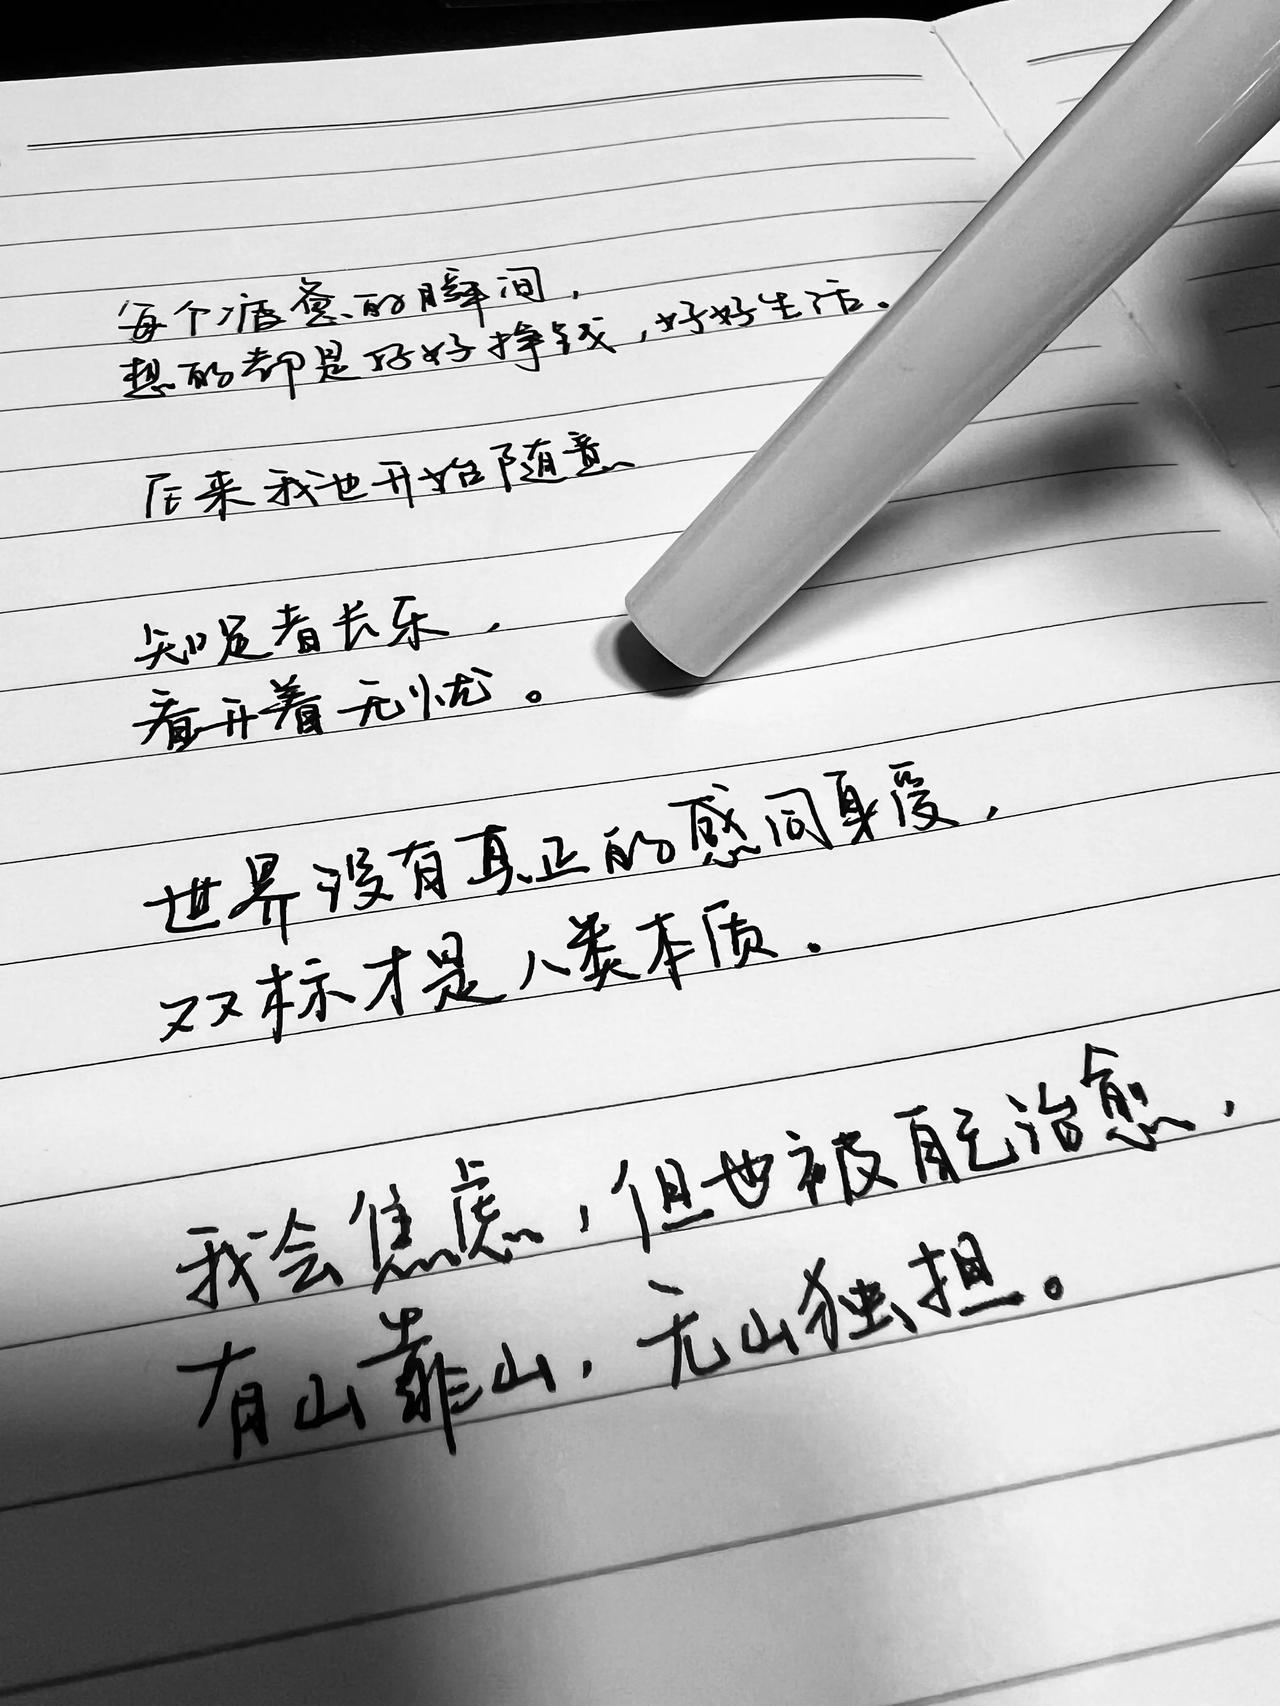 每个疲惫的瞬间，
想的都是好好挣钱，好好生活。
后来我也开始随意
知足者长乐，
看开着无忧。
世界没有真正的感同身受，
双标才是人类本质。
我会焦虑，但也被自己治愈，
有山靠山，无山独担。